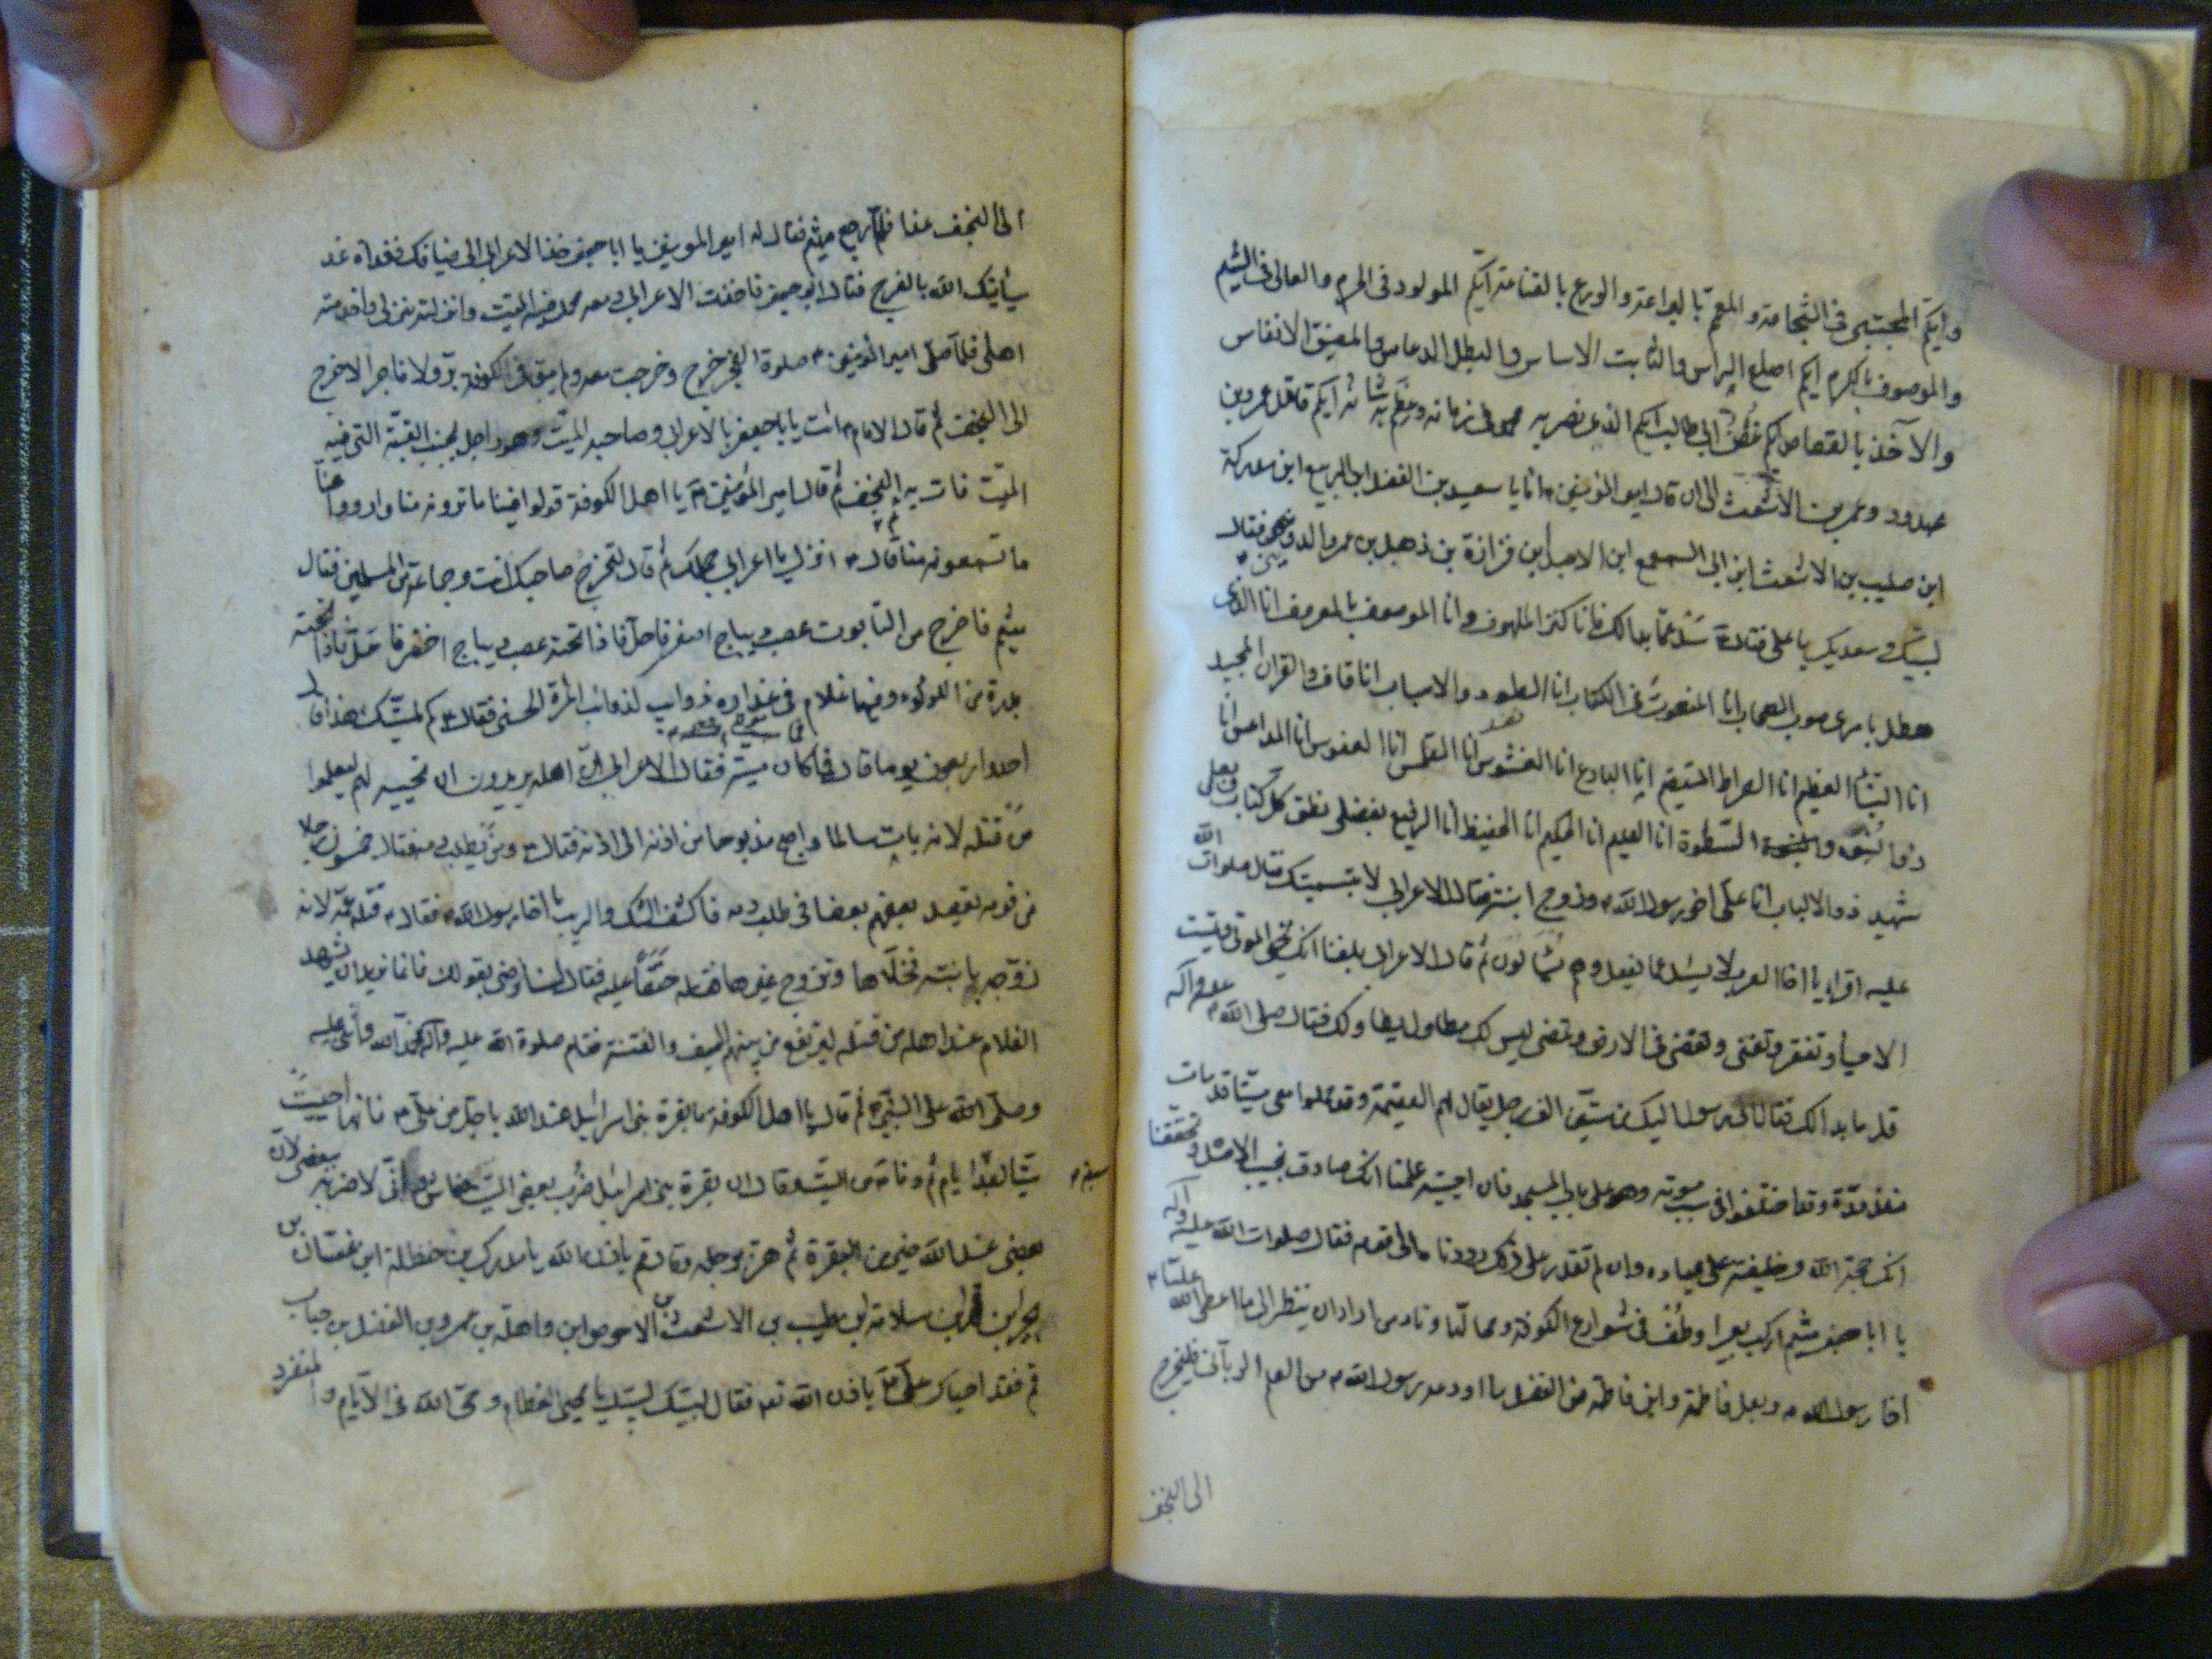 وايكم المجتبى في الشجاعة والمعمم بالبراعة والورع بالقناعة ايكم المولود في الحرم والعالى في الشيم
والموصوف بالكرم ايكم اصلع الراس والثابت الاساس والبطل الدعاس والمضيق الانفاس
والآخذ بالقصاص ايكم غصن ابى طالب ايكم الذي نصر به محمد في زمانه وعظم به شانه ايكم قاتل عمرو بن
عبدود وعمر بن الاشعث الى ان قال امير المؤمنين م انا يا سعيد بن الفضل ابن الربيع ابن مدركة
ابن صليب بن الاشعث ابن ابى السمعمع ابن الاحبل ابن فزارة بن ذهيل بن عمرو الدوينى فقال
لبيك وسعديك يا على فقال م سل عما بدا لك فانا كنز الملهوف وانا الموصوف بالمعروف انا الذى
هطل بامرى صوب السحاب انا المنعوت في الكتاب انا الطود والاسباب انا قاف والقرآن المجيد
انا النبأ العظيم انا الصراط المستقيم انا البارع انا العشوش انا القلمس انا العفوس انا المداعس انا
ذو النبوة والسطوة انا العليم انا الحكيم انا الحفيظ انا الرفيع بفضلى نطق كل كتاب وبعلمى
شهيد ذوالالباب انا على اخو رسول الله م وزوج ابنته فقال الاعرابى لا بتسميتك فقال صلوات الله
عليه اقرأ يا اخا العرب لا يسئل عما يفعل وهم يسئلون ثم قال الاعرابى بلغنا انك تحيى الموتى وتميت
الاحياء وتفقر وتغنى وتقضى في الارض وتمضى ليس لك مطاول يطاولك فقال صلى الله عليه وآله
قل ما بدا لك فقال انى رسول اليك من ستين الف رجل يقال لهم العقيمة وقد حملوا معى ميتا قد مات
منذ مدة وقد اختلفوا في سبب موته وهو على باب المسجد فان احييته علمنا انك صادق نجيب الاصل وتحققنا
انك حجة الله وخليفته على عباده وان لم تقدر على ذلك رددناه الى قومه فقال صلوات الله عليه وآله
يا ابا جعفر ميثم اركب بعيرا وطف في شوارع الكوفة ومحالها وناد من اراد ان ينظر الى ما اعطى الله عليا م
اخا رسول الله م وبعل فاطمة وابن فاطمة من الفضل ما اودعه رسول الله م من العلم الربانى فليخرج
الى النجف
الى النجف غدا فلما رجع ميثم فقال له امير المؤمنين يا ابا جعفر خذ الاعرابى الى ضيافتك فغداة غد
سيأتيك الله بالفرج فقال ابو جعفر فاخذت الاعرابى ومعه محمل فيه الميت وانزلته منزلى واخدمته
اهلى فلما صلى امير المؤمنين م صلوة الفجر خرج وخرجت معه ولم يبق في الكوفة بر ولا فاجر الا خرج
الى النجف ثم قال الامام م ائت يا ابا جعفر بالاعرابى وصاحبه الميت وهو راجل بجنب القبة التى فيه
الميت فات به النجف ثم قال امير المؤمنين م يا اهل الكوفة قولوا فينا ما ترونه منا وارووا عنا
ما تسمعونه منا ثم قال م انزل يا اعرابى جملك ثم قال لتخرج صاحبك انت وجماعة من المسلمين فقال
ميثم فاخرج من التابوت عصب ديباج اصفر فاحل فاذا تحته عصب ديباج اخضر فاحل فاذا تحته
بدرة من اللؤلؤ وفيها غلام في عذاره ذوايب كذوائب المرأة الحسنى فقال م كم لميتك هذا فقال
احد واربعون يوما قال فما كان ميتته فقال الاعرابى ان اهله يريدون ان تحييه لهم ليعلموا
من قتله لانه بات سالما واصبح مذبوحا من اذنه الى اذنه فقال م ومن يطلب دمه فقال خمسون رجلا
من قومه يقصد بعضهم بعضا في طلب دمه فاكشف الشك والريب يا اخا رسول الله م فقال م قتله عمه لانه
زوجه بابنته فخلاها وتزوج غيرها فقتله حنقا عليه فقال لسنا نرضى بقولك فانما نريد ان يشهد
الغلام عند اهله من قتله ليرتفع من بينهم السيف والفتنة فقام صلوة الله عليه وآله فحمد الله واثنى عليه
وصلى الله على النبى م ثم قال يا اهل الكوفة ما بقرة بنى اسرائيل عند الله باجل من على م فانها احييت
ميتا بعد سبعة ايام ثم دنا م من الميت وقال ان بقرة بنى اسرائيل ضرب ببعضها الميت فعاش وانى لاضربه ببعضى لان
بعضى عند الله خير من البقرة ثم هزه برجله وقال قم باذن الله يا مدرك بن حنظلة ابن غسان بن
بحير ابن فهر بن سلامة بن طيب بن الاشعث بن الاحوص ابن واهلة بن عمرو بن الفضل بن حباب
قم فقد احياك على م باذن الله تعه فقال لبيك لبيك يا محيى العظام وحجة الله في الانام والمنفرد